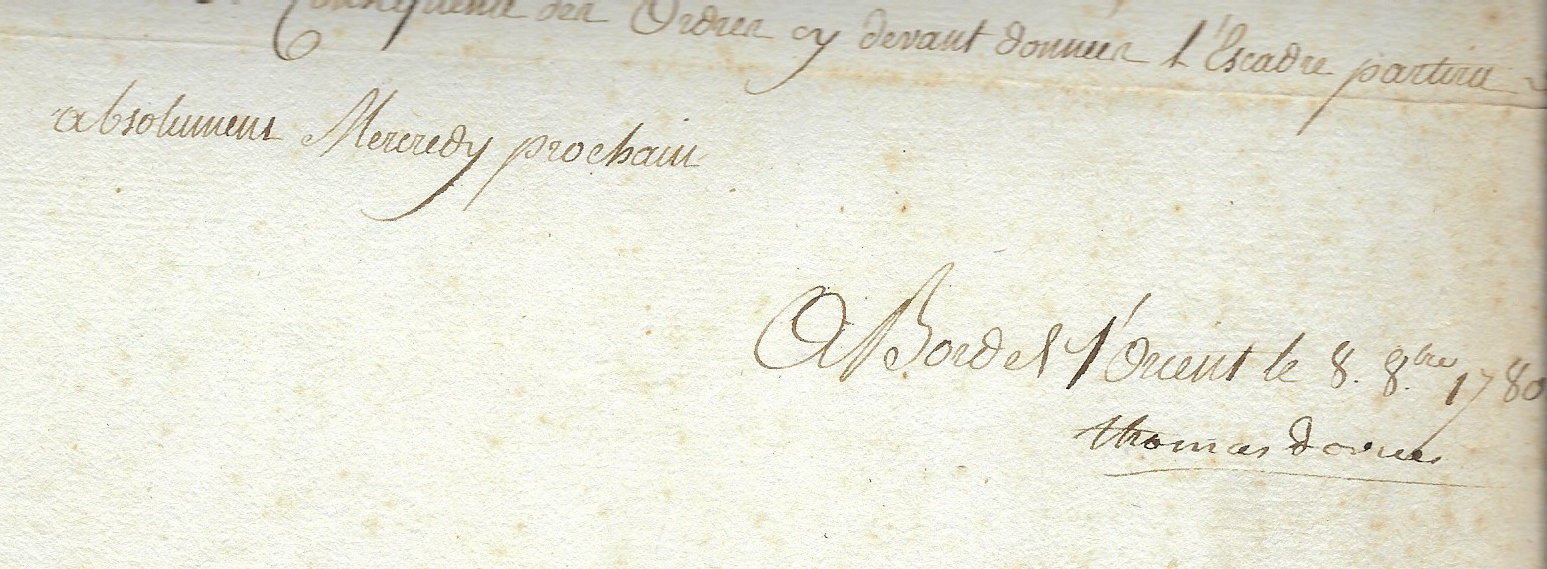 Consequence des Ordres cy devant données l'Escadre partira
absolument Mercredy prochain
A Bord de l'Orient le 8. 8.bre 1780
thomas dorves